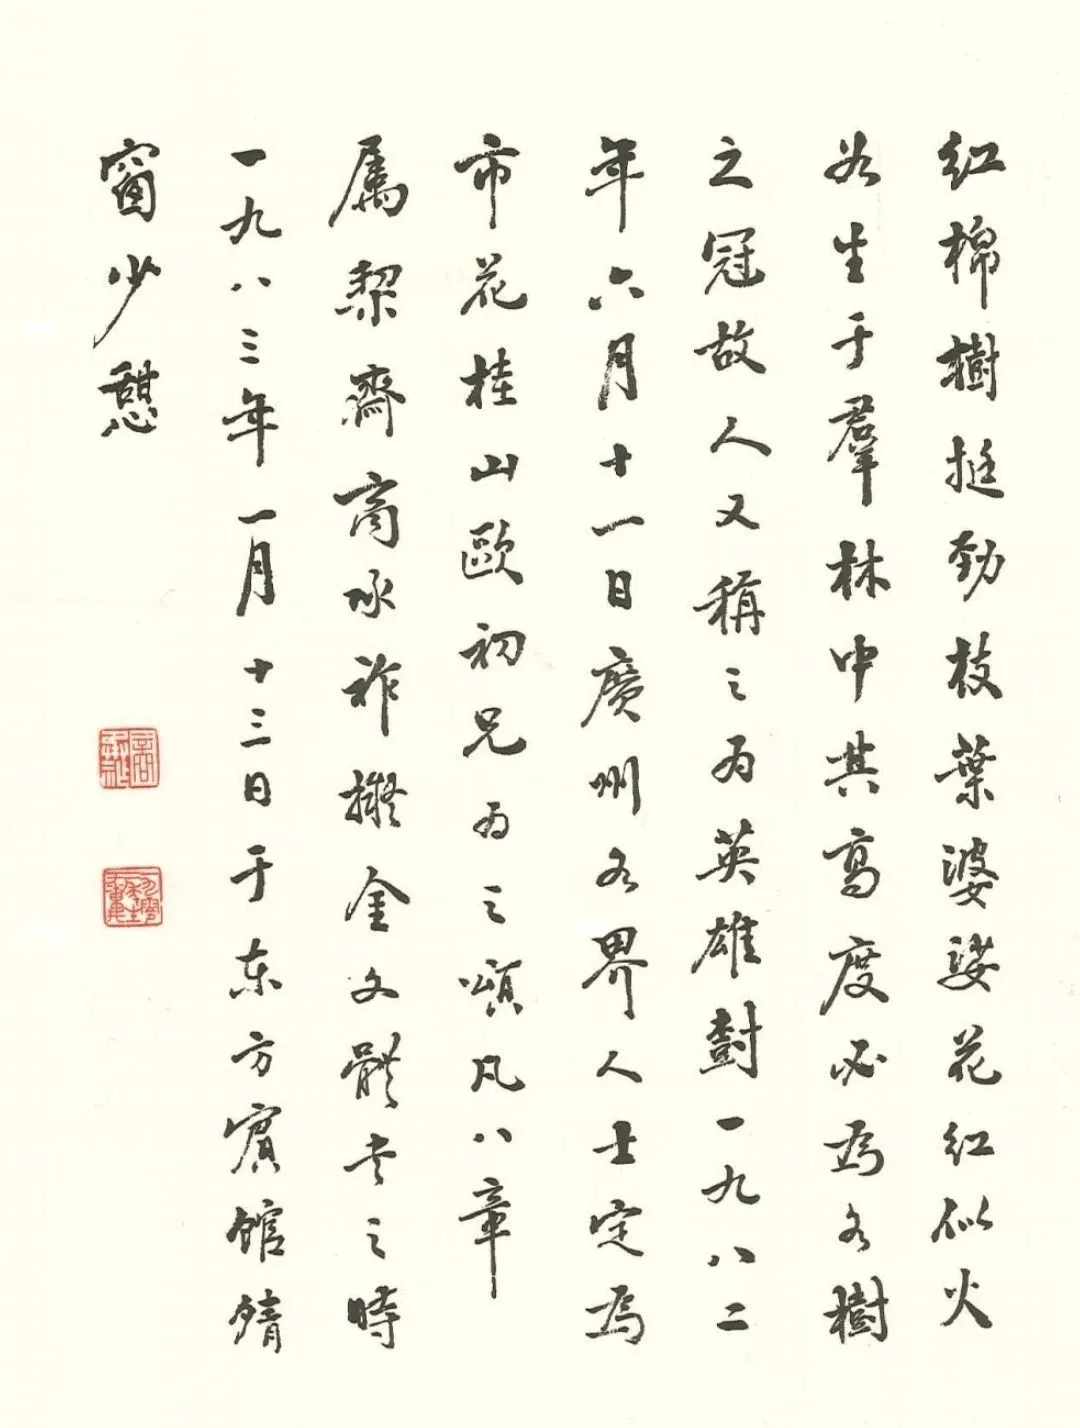 红棉樹挺勁枝葉婆娑花红似火
若生于羣林中其高度必為各樹
之冠故人又稱之为英雄尌一九八二
年六月十一日廣州各界人士定為
市花桂山歐初兄为之頌凡八章
属栔齋商承祚擬金文體书之時
一九八三年一月十三日于东方賓馆晴
窗少憩
商承祚